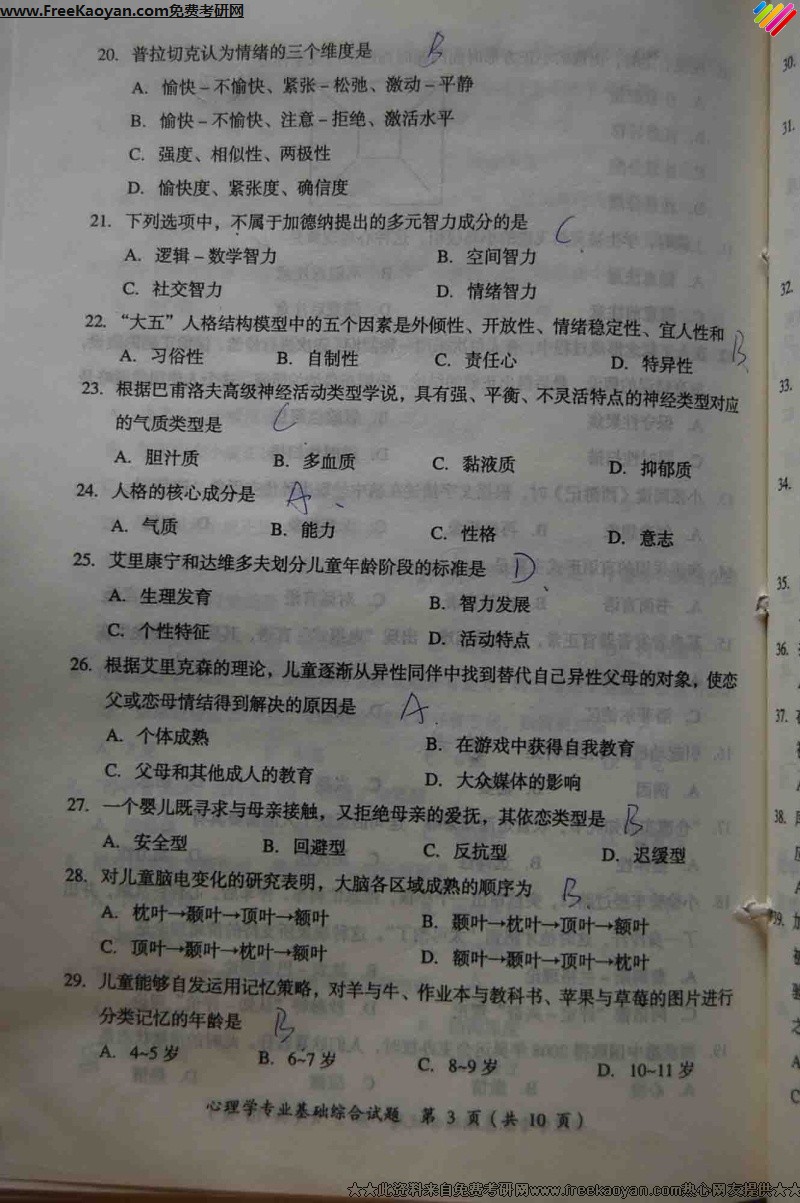 www.FreeKaoyan.com免费考研网
20. 普拉切克认为情绪的三个维度是 B
A. 愉快－不愉快、紧张－松弛、激动－平静
B. 愉快－不愉快、注意－拒绝、激活水平
C. 强度、相似性、两极性
D. 愉快度、紧张度、确信度
21. 下列选项中，不属于加德纳提出的多元智力成分的是 C
A. 逻辑－数学智力 B. 空间智力
C. 社交智力 D. 情绪智力
22. “大五”人格结构模型中的五个因素是外倾性、开放性、情绪稳定性、宜人性和 B
A. 习俗性 B. 自制性 C. 责任心 D. 特异性
23. 根据巴甫洛夫高级神经活动类型学说，具有强、平衡、不灵活特点的神经类型对应
的气质类型是 C
A. 胆汁质 B. 多血质 C. 黏液质 D. 抑郁质
24. 人格的核心成分是 A
A. 气质 B. 能力 C. 性格 D. 意志
25. 艾里康宁和达维多夫划分儿童年龄阶段的标准是 D
A. 生理发育 B. 智力发展
C. 个性特征 D. 活动特点
26. 根据艾里克森的理论，儿童逐渐从异性同伴中找到替代自己异性父母的对象，使恋
父或恋母情结得到解决的原因是 A
A. 个体成熟 B. 在游戏中获得自我教育
C. 父母和其他成人的教育 D. 大众媒体的影响
27. 一个婴儿既寻求与母亲接触，又拒绝母亲的爱抚，其依恋类型是 B
A. 安全型 B. 回避型 C. 反抗型 D. 迟缓型
28. 对儿童脑电变化的研究表明，大脑各区域成熟的顺序为 B
A. 枕叶→颞叶→顶叶→额叶 B. 颞叶→枕叶→顶叶→额叶
C. 顶叶→颞叶→枕叶→额叶 D. 额叶→颞叶→顶叶→枕叶
29. 儿童能够自发运用记忆策略，对羊与牛、作业本与教科书、苹果与草莓的图片进行
分类记忆的年龄是 B
A. 4~5 岁 B. 6~7 岁 C. 8~9 岁 D. 10~11 岁
心理学专业基础综合试题 第 3 页（共 10 页）
30.
31.
32.
33.
34.
35.
36.
37.
38.
39.
☆☆此资料来自免费考研网www.freekaoyan.com热心网友提供☆☆